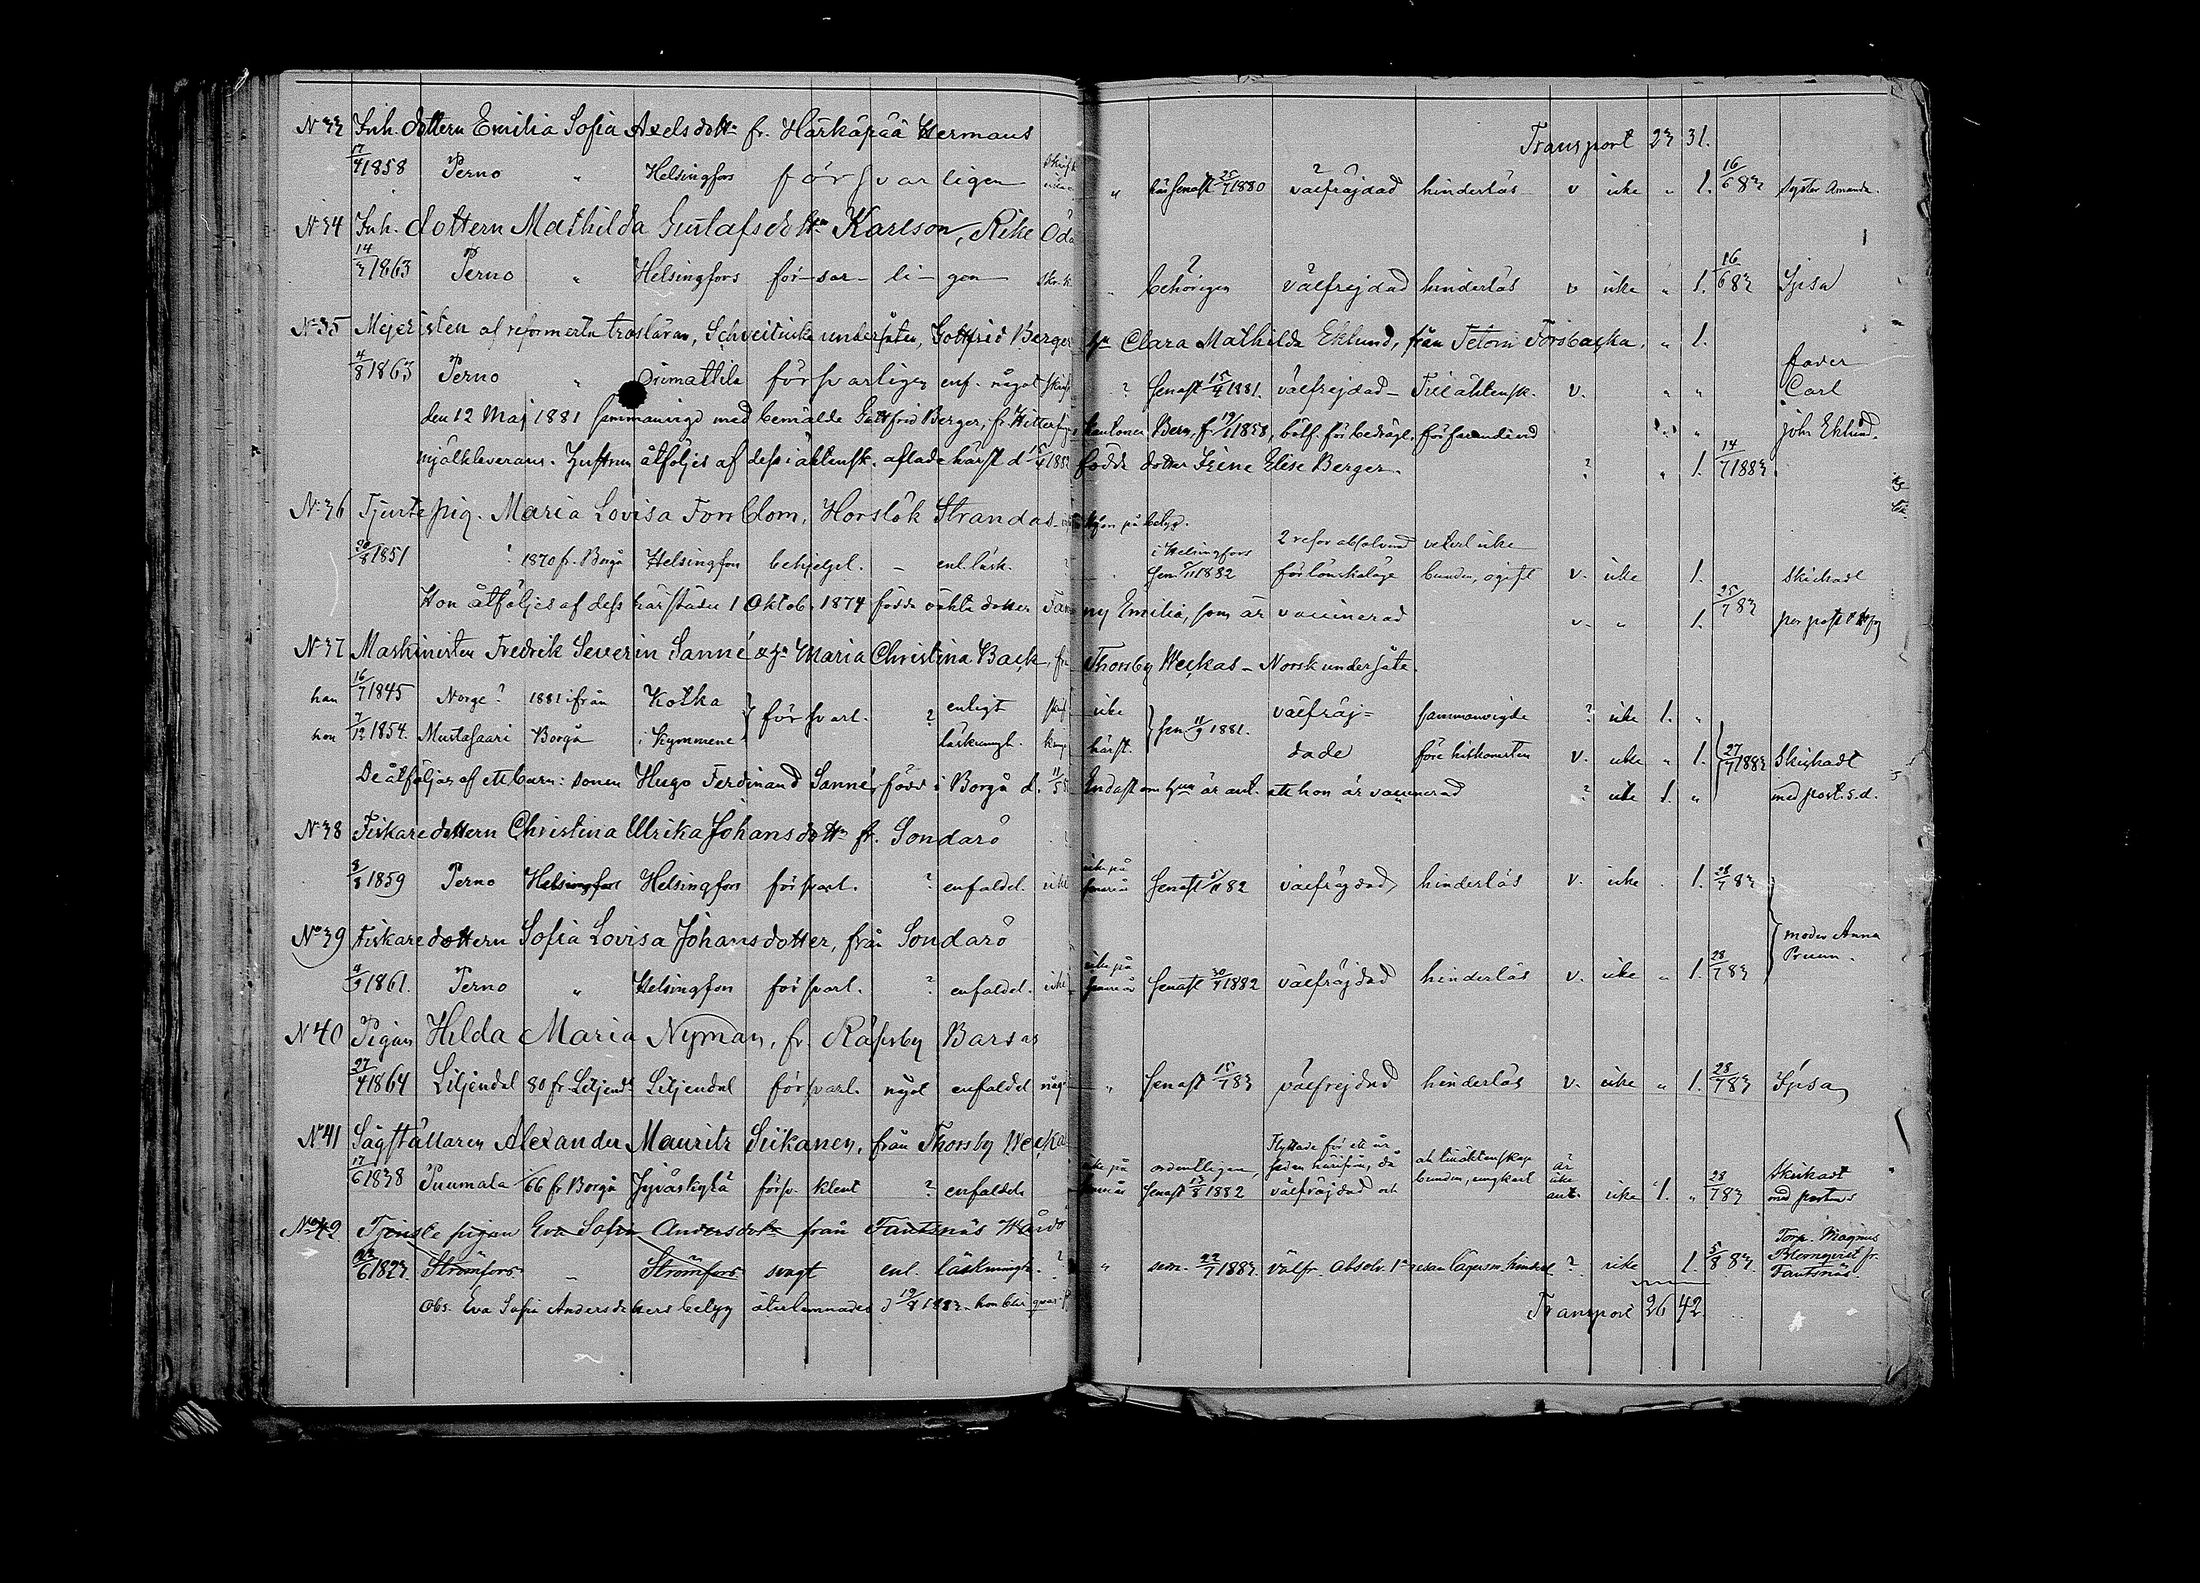 Transport 23 31.
N 33 Inh. dottern Emilia Sofia Axelsdottr fr. Härkäpää Hermans
17/4 1858 Perno " Helsingfors försvarligen " senast 25/7 1880 välfräjdad hinderlös v icke " 1. 16/6 83 syster Amanda.
N 34 Inh. dottern Mathilda Gustafsdottr Karlson, Rike Öd
14/3 1863 Perno " Helsingfors för-svar-li-gen behörigen välfrejdad hinderlös v icke " 1. 16/6 83 Ipsa
N 35 Mejeristen af reformerta trosläran, Schveitziska undersåten, Gottfrid Berger Hu Clara Mathilda Eklund, från Tetom Forsbacka. " 1.
4/8 1863 Perno " Orimattila försvarligen enf. något ? senast 15/4 1881. välfrejdad - Till äktensk. v. " " fader Carl
den 12 Maj 1881 sammanvigd med bemälde Gottfrid Berger, fr. kantonen Bern, f. 19/11 1858, för bedrägl. förfarande vid " " joh. Eklund.
mjölkleverans. Hustrun åtföljes af dess i äktensk. aflade härst. d. födde dotter Irene Elise Berger. ? " 1. 14/7 1883.
N 36 Tjenstepig. Maria Lovisa Forsblom, Horslök Strandas på betyg.
20/8 1851 ? 1870 fr. Borgå Helsingfors behjelpl. - enl. läsk. i Helsingfors sen 5/11 1882 2 resor absolverad för lönskaläge veterl. icke bunden, ogift v. icke 1. Skickadt
Hon åtföljes af dess härstädes 1 Oktob. 1874 födda oäkta dotter Fanny Emilia, som är vaccinerad v. " 1. 25/7 83 per post
N 37 Maskinisten Fredrik Severin Sanné o. Hu Maria Christina Back, fr. Thorsby Weckas - Norsk undersåte.
han 16/7 1845 Norge? 1881 ifrån Kotka försvarl. ? enligt icke sen 11/9 1881. välfräj= sammanvigde ? icke 1. "
hon 7/12 1854. Mustasaari Borgå Kymmene läskungl. härst. dade före hitkomsten v. icke " 1. 27/7 1883 Skickadt
De åtföljas af ett barn: sonen Hugo Ferdinand Sanné, född i Borgå d. Endast om Hun är ant. att hon är vaccinerad ? icke 1. " med post. s.d.
N 38 Fiskaredottern Christina Ulrika Johansdottr fr. Sondarö
3/3 1859 Perno Helsingfors Helsingfors försvarl. ? enfaldel. icke på senare år senast 5/11 82 välfräjdad hinderlös v. icke . 1. 28/7 83
No 39 Fiskaredottern Sofia Lovisa Johansdotter, från Sondarö moder Anna
4/9 1861. Perno " Helsingfors försvarl. ? enfaldel. icke på senare år senast 30/7 1882 välfräjdad hinderlös v. icke " 1. 28/7 83
N 40 Pigan Hilda Maria Nyman, fr. Räfsby Barsas
27/4 1864 Liljendal 80 fr Liljendl Liljendal försvarl. nöjl enfaldel " senast 15/7 83 välfrejdad hinderlös v. icke " 1. 28/7 83 Ipsa
N 41 Sågställaren Alexander Mauritz Siikanen, från Thorsby Wecka
17/6 1838 Puumala 66 fr Borgå Jyväskylä försv. klent ? enfaldel. icke på senare år ordentligen, senast 13/8 1882 Flyttade för ett år sedan härifrån, då välfräjdad och ock till äktenskap bunden, ungkarl är icke ant. icke 1. " 28/7 83 Skickadt med posten
No 42 Tjenste pigan Eva Sofia Andersdottr från Fantsnäs Wårdö
22/6 1823. Strömfors - Strömfors svagt enl. läskunnigh. ? " sedn. 22/7 1883 välfr. Absolv. 1a resan lägersm. hinderl. ? icke 1. 5/8 83. Torp. Magnus Blomqvist fr. Fantsnäs.
Obs. Eva Sofia Andersdotters betyg återlemnades d 19/8 1883. hon blir qvar
Transport 26 42